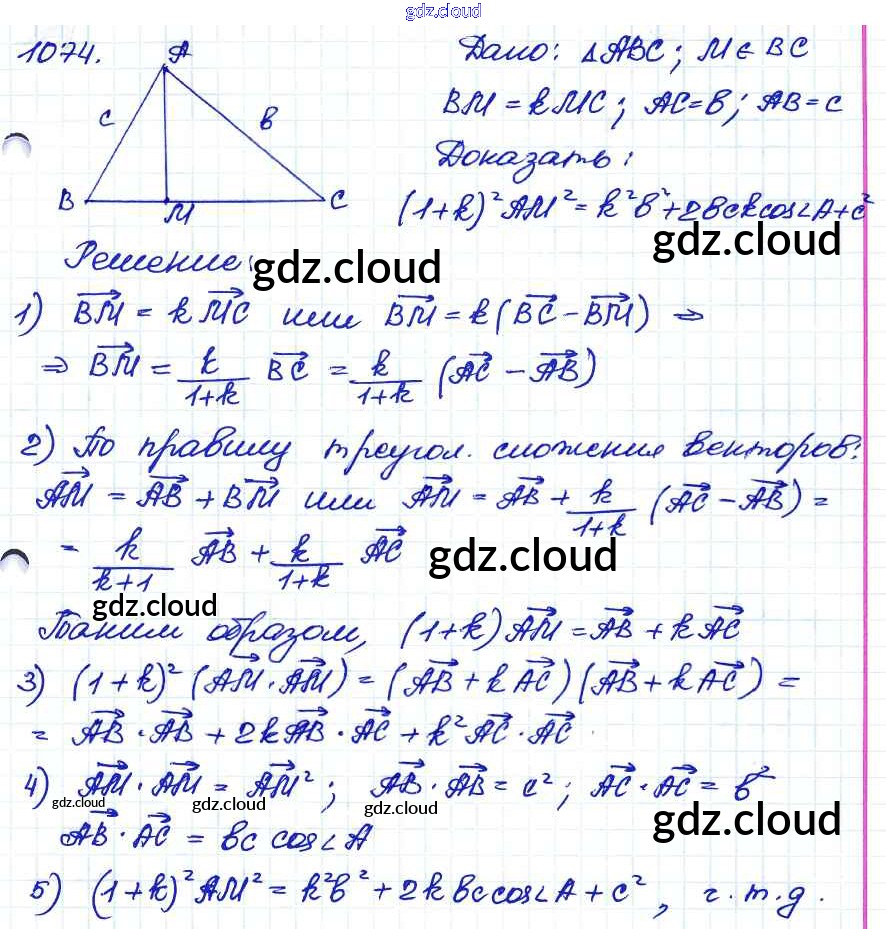 gdz.cloud
1074.
A
c
b
B
M
C
Дано: △ABC; M ∈ BC
BM = kMC; AC=b; AB=c
Доказать:
(1+k)²AM² = k²b²+2bckcos∠A+c²
gdz.cloud
Решение:
gdz.cloud
1) BM⃗ = k MC⃗ или BM⃗ = k(BC⃗ - BM⃗) ⇒
⇒ BM⃗ = k/(1+k) BC⃗ = k/(1+k) (AC⃗ - AB⃗)
2) По правилу треугол. сложения векторов:
AM⃗ = AB⃗ + BM⃗ или AM⃗ = AB⃗ + k/(1+k) (AC⃗ - AB⃗) =
= k/(k+1) AB⃗ + k/(1+k) AC⃗
gdz.cloud
gdz.cloud
Таким образом, (1+k)AM⃗ = AB⃗ + kAC⃗
3) (1+k)² (AM⃗·AM⃗) = (AB⃗ + kAC⃗)(AB⃗ + kAC⃗) =
= AB⃗·AB⃗ + 2kAB⃗·AC⃗ + k²AC⃗·AC⃗
4) AM⃗·AM⃗ = AM⃗²; AB⃗·AB⃗ = c²; AC⃗·AC⃗ = b²
gdz.cloud
gdz.cloud
gdz.cloud
gdz.cloud
AB⃗·AC⃗ = bc cos∠A
5) (1+k)²AM² = k²b² + 2kbccos∠A + c², ч.т.д.